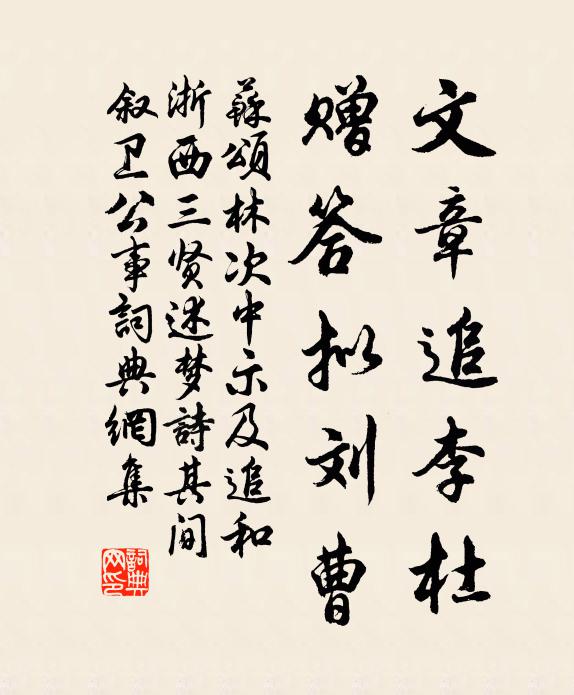 文章追李杜
赠答拟刘曹
蘇頌林次中示及追和
浙西三贤述梦詩其间
叙卫公事詞典網集
詞典网印